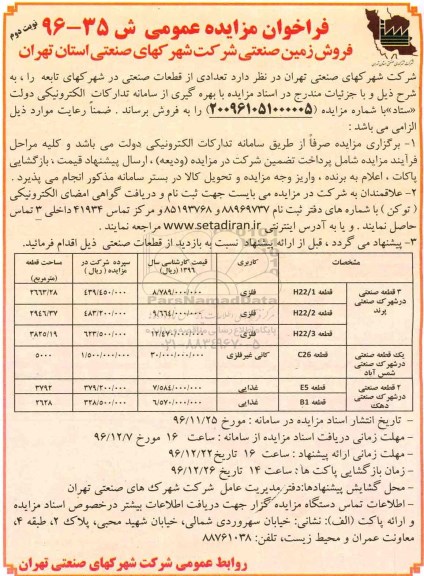 نوبت دوم
فراخوان مزایده عمومی ش ۳۵-۹۶
فروش زمین صنعتی شرکت شهرکهای صنعتی استان تهران
شرکت شهرکهای صنعتی تهران در نظر دارد تعدادی از قطعات صنعتی در شهرکهای تابعه را، به
شرح ذیل و با جزئیات مندرج در اسناد مزایده با بهره گیری از سامانه تدارکات الکترونیکی دولت
«ستاد»با شماره مزایده (۲۰۰۹۶۱۰۵۱۰۰۰۰۰۵) را به فروش برساند . ضمناً رعایت موارد ذیل
الزامی می باشد :
۱- برگزاری مزایده صرفاً از طریق سامانه تدارکات الکترونیکی دولت می باشد و کلیه مراحل
فرآیند مزایده شامل پرداخت تضمین شرکت در مزایده (ودیعه) ، ارسال پیشنهاد قیمت ، بازگشایی
پاکات ، اعلام به برنده ، واریز وجه مزایده و تحویل کالا در بستر سامانه مذکور انجام می پذیرد .
۲- علاقمندان به شرکت در مزایده می بایست جهت ثبت نام و دریافت گواهی امضای الکترونیکی
( توکن ) با شماره های دفتر ثبت نام ۸۸۹۶۹۷۳۷ و ۸۵۱۹۳۷۶۸ و مرکز تماس ۴۱۹۳۴ داخلی ۳ تماس
حاصل نمایند . و یا به آدرس اینترنتی www.setadiran.ir مراجعه نمایند .
۳- پیشنهاد می گردد ، قبل از ارائه پیشنهاد نسبت به بازدید از قطعات صنعتی ذیل اقدام فرمائید.
مشخصات کاربری قیمت کارشناسی سال ۱۳۹۶ (ریال) سپرده شرکت در مزایده ( ریال) مساحت قطعه (مترمربع)
۳ قطعه صنعتی درشهرک صنعتی پرند
قطعه H22/1 فلزی ۸/۷۸۹/۰۰۰/۰۰۰ ۴۳۹/۴۵۰/۰۰۰ ۲۶۶۳/۲۸
قطعه H22/2 فلزی ۹/۶۶۴/۰۰۰/۰۰۰ ۴۸۳/۲۰۰/۰۰۰ ۲۹۴۶/۳۷
قطعه H22/3 فلزی ۱۲/۴۷۰/۰۰۰/۰۰۰ ۶۲۳/۵۰۰/۰۰۰ ۳۸۲۵/۱۹
یک قطعه صنعتی درشهرک صنعتی شمس آباد قطعه C26 کانی غیرفلزی ۳۰/۰۰۰/۰۰۰/۰۰۰ ۱/۵۰۰/۰۰۰/۰۰۰ ۵۰۰۰
۲ قطعه صنعتی درشهرک صنعتی دهک
قطعه E5 غذایی ۷/۵۸۴/۰۰۰/۰۰۰ ۳۷۹/۲۰۰/۰۰۰ ۳۷۹۲
قطعه B1 غذایی ۶/۵۷۰/۰۰۰/۰۰۰ ۳۲۸/۵۰۰/۰۰۰ ۲۶۲۸
ParsNamadData
۰۲۱-۸۸۳۴۹۶۷۰-۵
- تاریخ انتشار اسناد مزایده در سامانه : مورخ ۹۶/۱۱/۲۵
- مهلت زمانی دریافت اسناد مزایده از سامانه : ساعت ۱۶ مورخ ۹۶/۱۲/۷
- مهلت زمانی ارائه پیشنهاد : ساعت ۱۶ تاریخ۹۶/۱۲/۲۲
- زمان بازگشایی پاکت ها : ساعت ۱۴ تاریخ ۹۶/۱۲/۲۶
- محل گشایش پیشنهادها:دفتر مدیریت عامل شرکت شهرک های صنعتی تهران
- اطلاعات تماس دستگاه مزایده گزار جهت دریافت اطلاعات بیشتر درخصوص اسناد مزایده
و ارائه پاکت (الف): نشانی: خیابان سهروردی شمالی، خیابان شهید محبی، پلاک ۲، طبقه ۴،
معاونت عمران و محیط زیست، تلفن: ۸۸۷۶۱۰۳۸
روابط عمومی شرکت شهرکهای صنعتی تهران